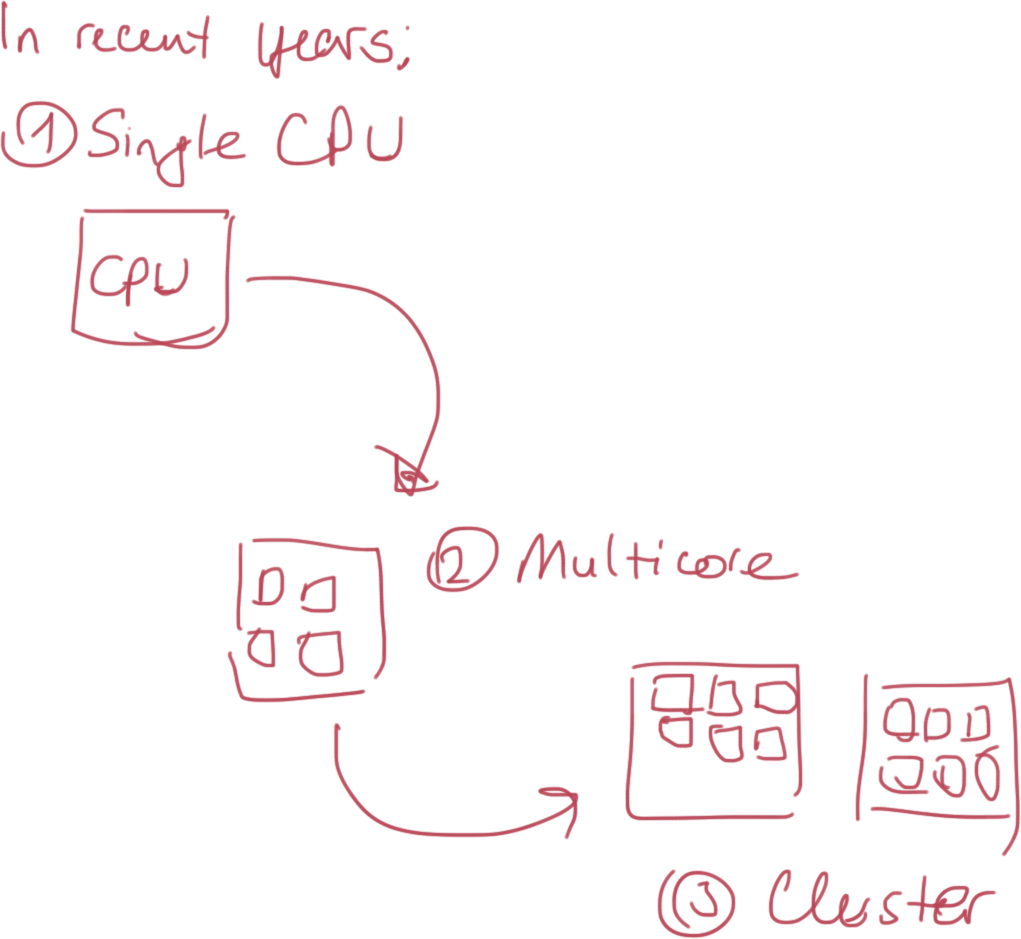 In recent years;
① Single CPU
CPU
② Multicore
③ Cluster